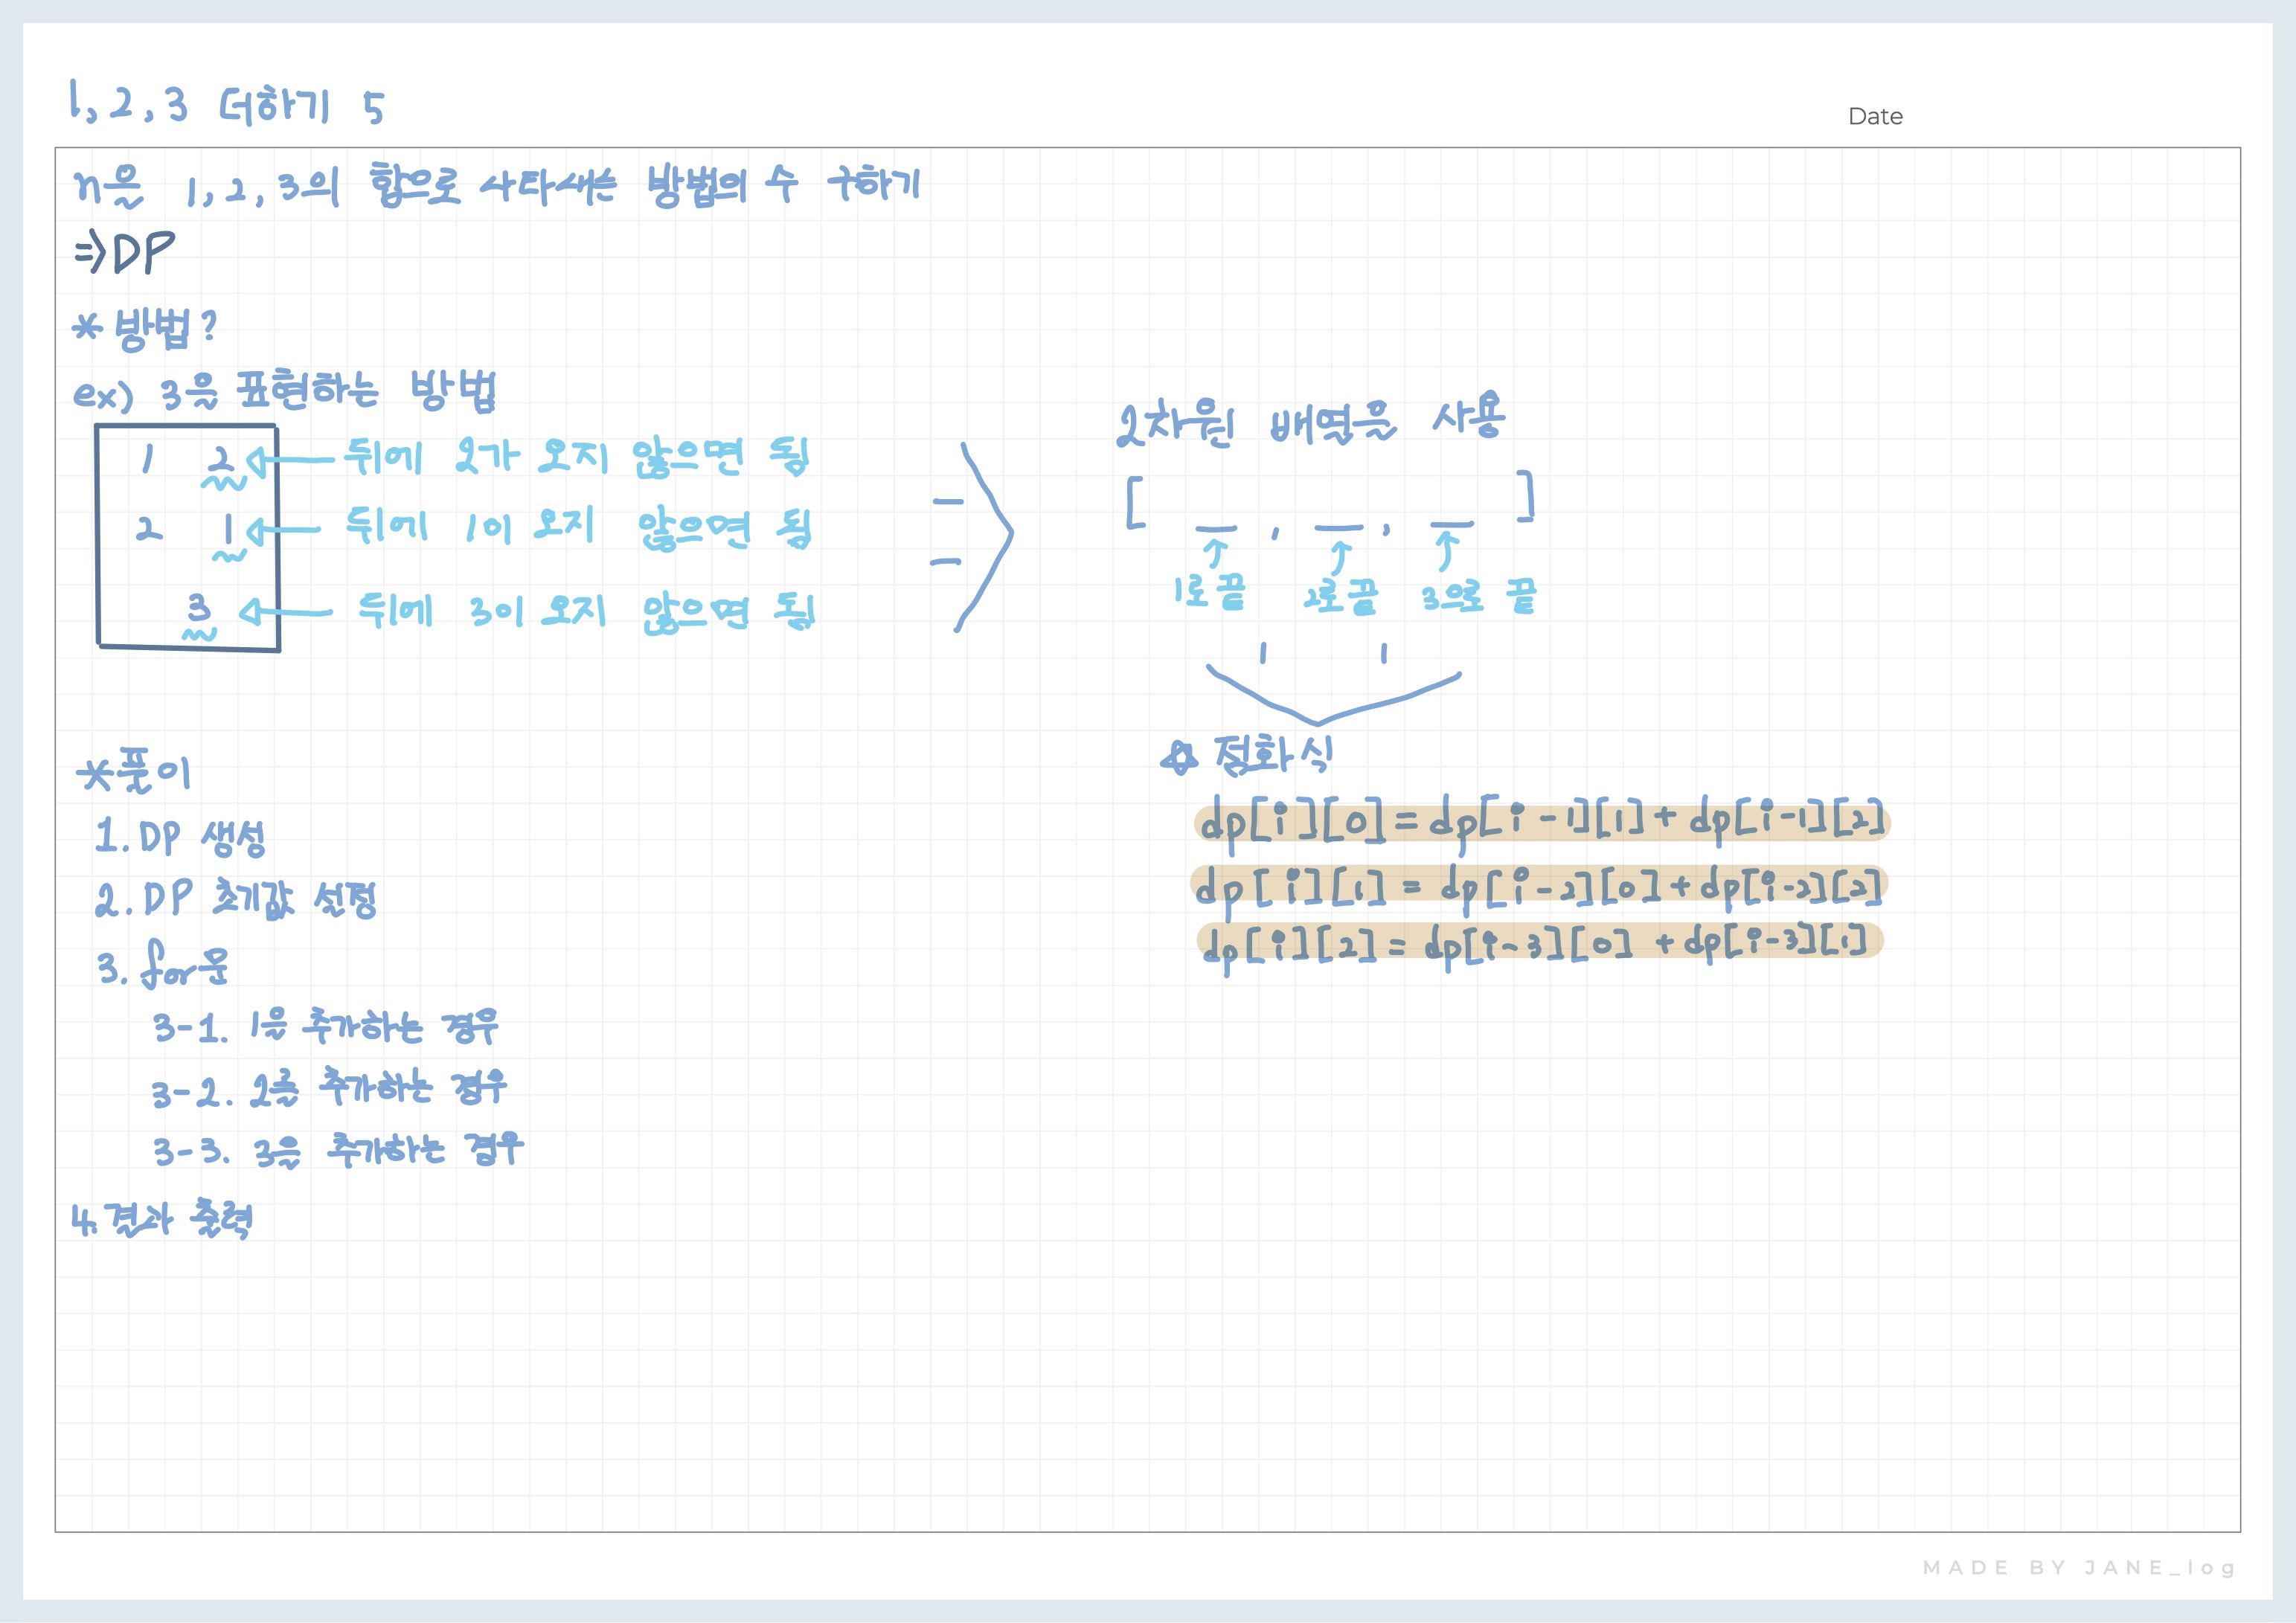 1, 2, 3 더하기 5
Date
n을 1, 2, 3의 합으로 나타내는 방법의 수 구하기
=> DP
* 방법?
ex) 3을 표현하는 방법
1 2 ← 뒤에 2가 오지 않으면 됨
2 1 ← 뒤에 1이 오지 않으면 됨
3 ← 뒤에 3이 오지 않으면 됨
2차원 배열을 사용
[ _ , _ , _ ]
1로 끝 2로 끝 3으로 끝
☆ 점화식
dp[i][0] = dp[i-1][1] + dp[i-1][2]
dp[i][1] = dp[i-2][0] + dp[i-2][2]
dp[i][2] = dp[i-3][0] + dp[i-3][1]
* 풀이
1. DP 생성
2. DP 초기값 설정
3. for문
3-1. 1을 추가하는 경우
3-2. 2를 추가하는 경우
3-3. 3을 추가하는 경우
4. 결과 출력
MADE BY JANE_log